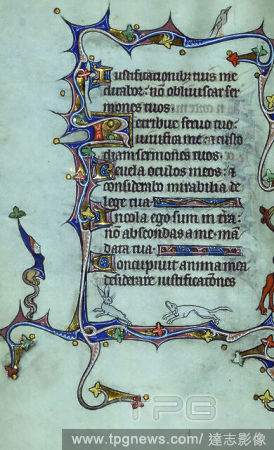 Iustificationib; tuis me
ditabor: nō obliuiscar ser
mones tuos.
Retribue seruo tuo
uiuifica me: ⁊ custo
diam sermones tuos.
Reuela oculos meos: ⁊
considerabo mirabilia de
lege tua.
Incola ego sum in tra:
nō abscondas a me mā
data tua.
Concupiuit anima mea
desiderare iustificatiōes
TPG
www.tpgnews.com / 達志影像